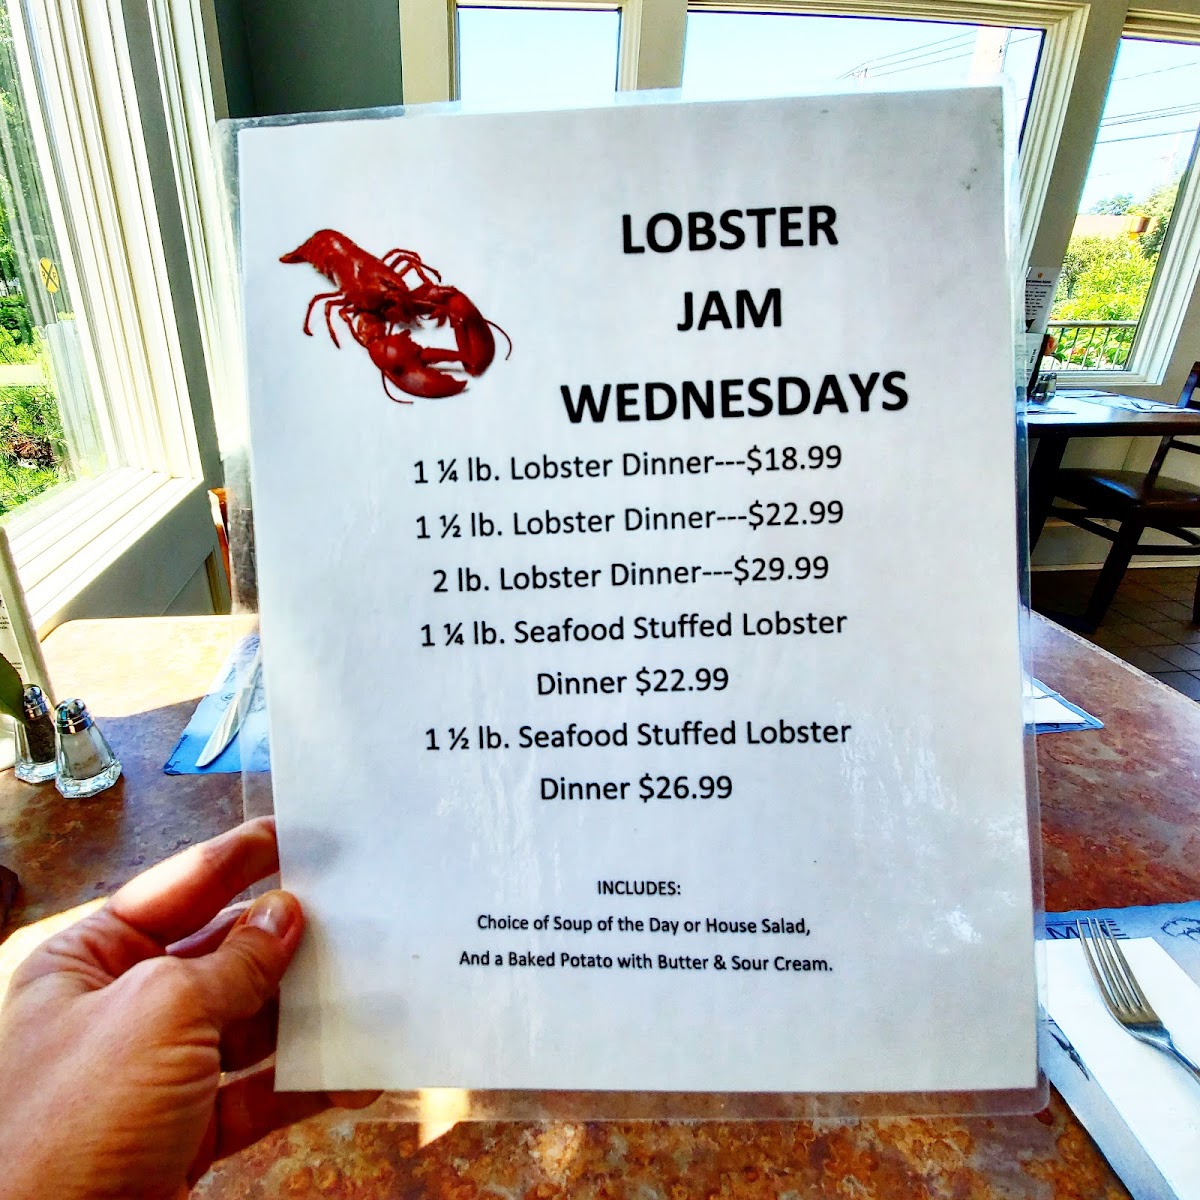 LOBSTER
JAM
WEDNESDAYS
1 ¼ lb. Lobster Dinner---$18.99
1 ½ lb. Lobster Dinner---$22.99
2 lb. Lobster Dinner---$29.99
1 ¼ lb. Seafood Stuffed Lobster
Dinner $22.99
1 ½ lb. Seafood Stuffed Lobster
Dinner $26.99
INCLUDES:
Choice of Soup of the Day or House Salad,
And a Baked Potato with Butter & Sour Cream.